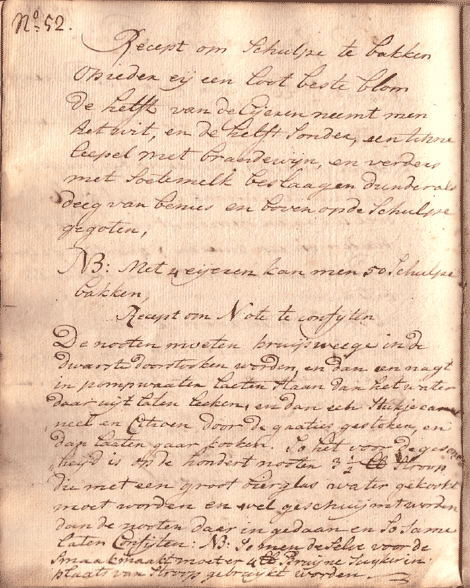 No. 52.
Recept om Schulpe te bakken
op ieder eij een loot beste blom
de helft van de Eijeren neemt men
het wit, en de helft sonder, een tinne
leepel met brandewijn, en verders
met soetemelk beslaagen dunder als
deeg van benies en boven op de Schulpe
gegoten,
NB: Met 4 eijeren kan men 50 Schulpe
bakken,
Recept om Note te confyten
De nooten moeten kruijsweege in de
dwarste doorstooken worden, en dan een nagt
in pompwaater laeten staan dan het water
daar uijt laten leeken, en dan een stukje caneel
neel en Citroen door de gaaties gestoken, en
dan laaten gaar kooken. So het voor de gesond
heyd is op de hondert nooten 3 lb Siroop
die met een groot bierglas water gekookt
moet worden en wel geschuijmt worden
dan de nooten daar in gedaan en so same
laten Confyten: NB: So men deselve voor de
smaak maakt moet er 4 lb Bruyne Suyker in
plaats van Siroop gebruykt worden